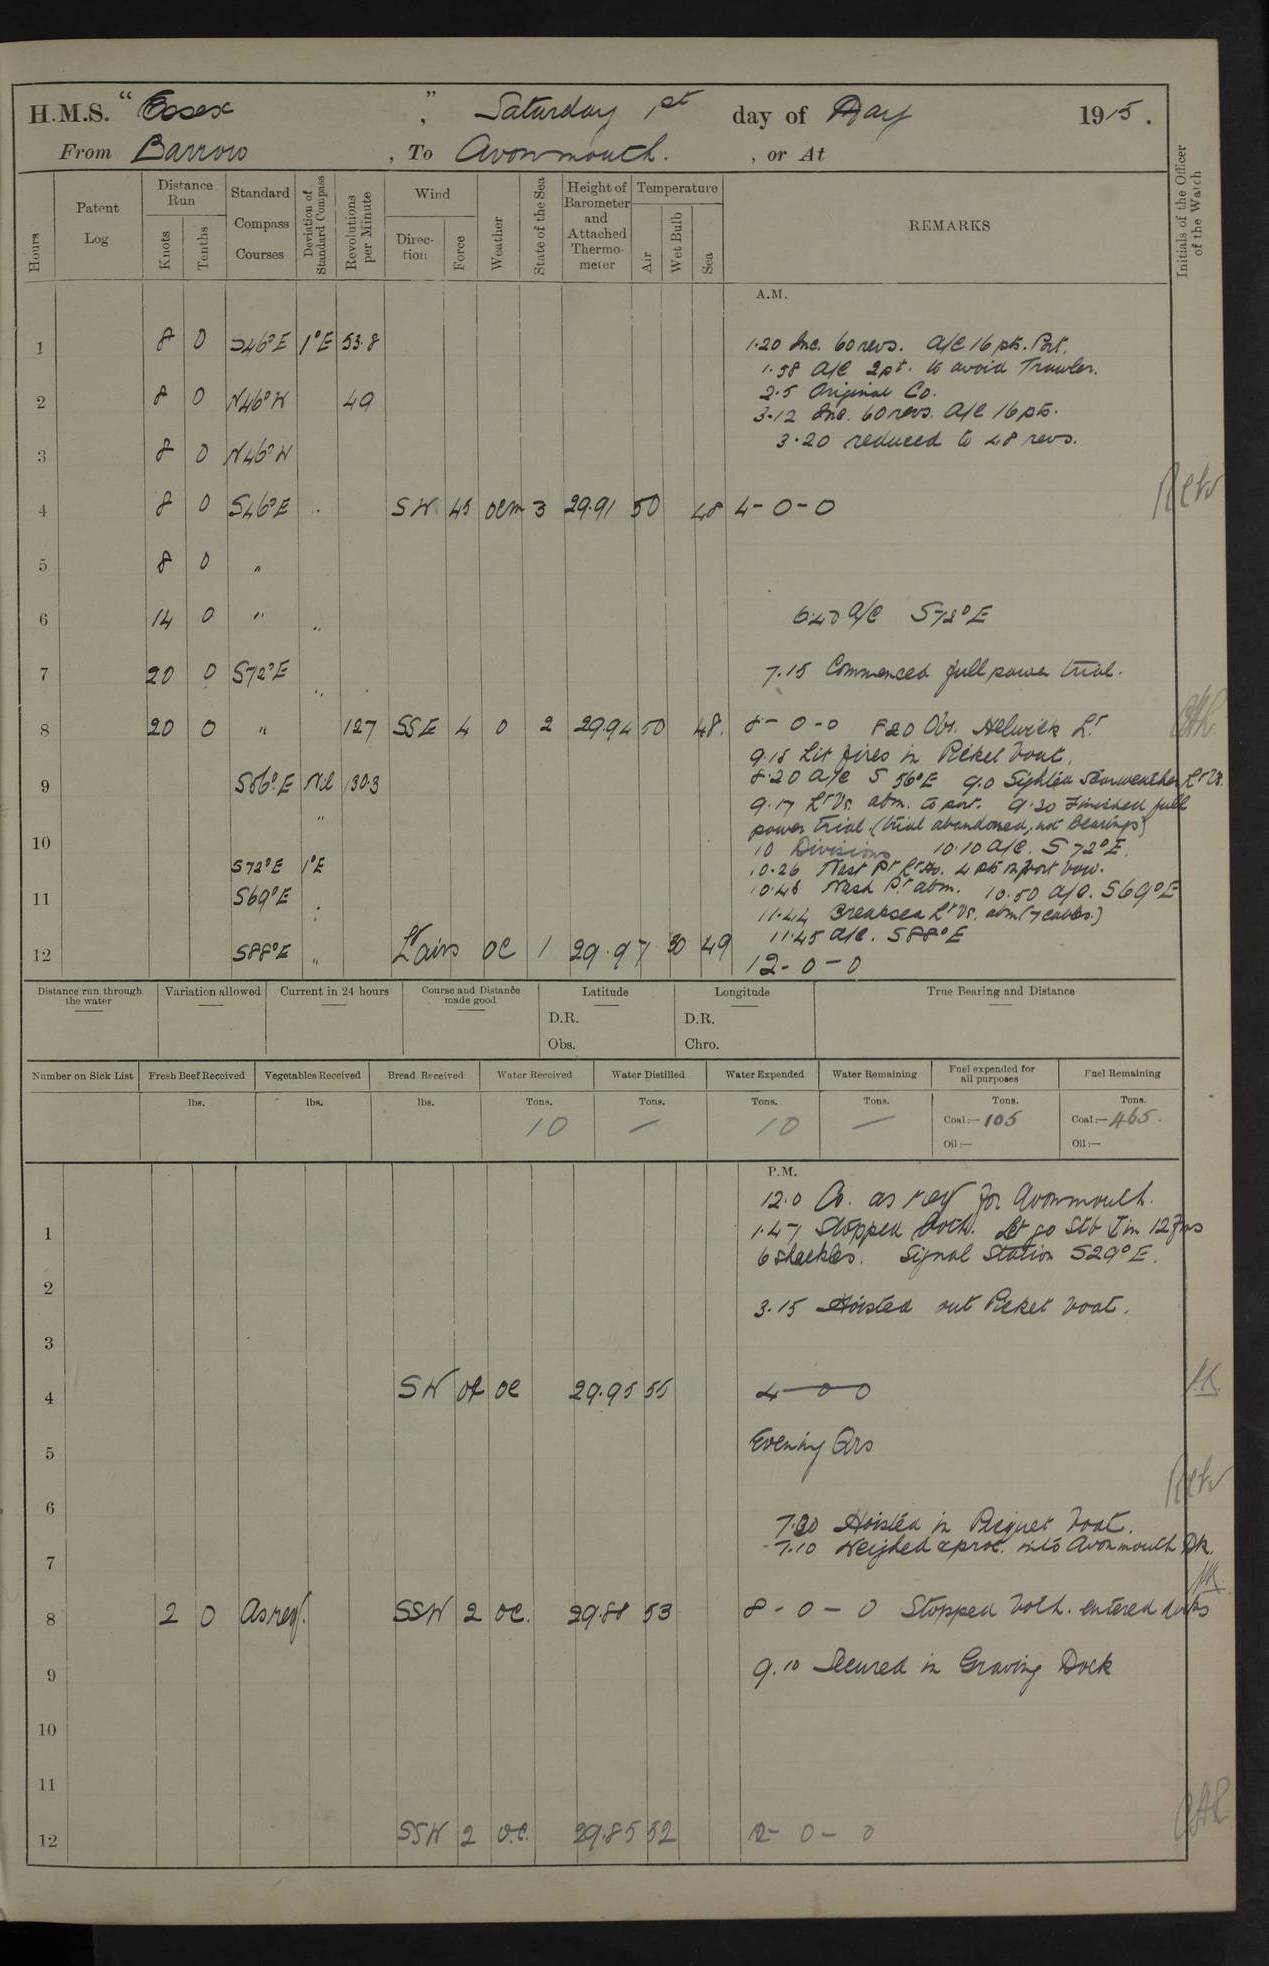 H.M.S. "Essex", Saturday 1st day of May 1915.
From Barrow, To Avonmouth., or At
Hours
Patent Log
Distance Run
Knots
Tenths
Standard Compass Courses
Deviation of Standard Compass
Revolutions per Minute
Wind
Direction
Force
Weather
State of the Sea
Height of Barometer and Attached Thermometer
Temperature
Air
Wet Bulb
Sea
REMARKS
Initials of the Officer of the Watch
A.M.
1 8 0 S46°E 1°E 53.8 1.20 Inc. 60 revs. A/C 16 pts. Port.
1.58 A/C 2pt. to avoid Trawler.
2 8 0 N46°W 49 2.5 Original Co.
3.12 Inc. 60 revs. A/C 16 pts.
3.20 reduced to 48 revs.
3 8 0 N46°W
4 8 0 S46°E SW 45 ocm 3 29.91 50 48 4-0-0
5 8 0 "
6 14 0 " " 6.40 A/C S72°E
7 20 0 S72°E " 7.15 Commenced full power trial.
8 20 0 " 127 SSE 4 0 2 29.94 50 48. 8-0-0 820 Obs. Helwick Lt
9.15 Lit fires in Picket boat.
9 S56°E Nil 130.3 8.20 A/C S 56°E 9.0 Sighted Scarweather Lt Vs.
" 9.17 Lt Vs. abm. to port. 9.30 Finished full
power trial (trial abandoned, hot bearings)
10 10 Divisions 10.10 A/C. S 72°E.
S72°E 1°E 10.26 Nash Pt Lt Ho. 4 pts on port bow.
11 S69°E " 10.45 Nash Pt. abm. 10.50 A/C. S69°E
11.44 Breaksea Lt Vs. abm (7 cables.)
11.45 A/C. S88°E
12 S88°E " Lt airs oc 1 29.97 50 49 12-0-0
Distance run through the water
Variation allowed
Current in 24 hours
Course and Distance made good
Latitude
D.R.
Obs.
Longitude
D.R.
Chro.
True Bearing and Distance
Number on Sick List
Fresh Beef Received
lbs.
Vegetables Received
lbs.
Bread Received
lbs.
Water Received
Tons.
10
Water Distilled
Tons.
—
Water Expended
Tons.
10
Water Remaining
Tons.
—
Fuel expended for all purposes
Tons.
Coal:— 105
Oil:—
Fuel Remaining
Tons.
Coal:— 465.
Oil:—
P.M.
12.0 Co. as req for Avonmouth.
1 1.47 Stopped both. Let go Stb in 12 fms
6 shackles. Signal Station S29°E.
2
3.15 Hoisted out Picket boat.
3
4 SW oc 29.95 55 4-0-0
5 Evening Qrs
6
7.00 Hoisted in Picquet boat.
7 7.10 Weighed & proc. into Avonmouth Dk.
8 2 0 As req. SSW 2 oc. 29.88 53 8-0-0 Stopped both. entered docks
9 9.10 Secured in Graving Dock
10
11
12 SSW 2 o.c. 29.85 52 12-0-0